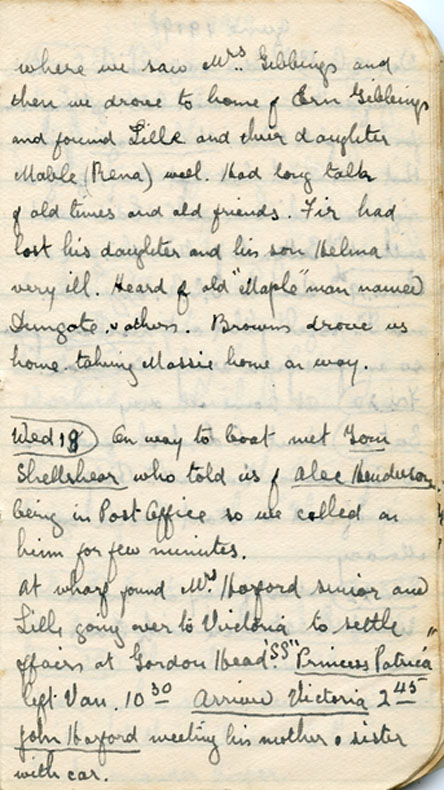 where we saw Mrs. Gibbings and
then we drove to home of Ern Gibbings
and found Lille and their daughter
Mable (Rena) well. Had long talk
of old times and old friends. Fir had
lost his daughter and his son Helina
very ill. Heard of old "Maple" man named
Dungate & others. Browns drove us
home taking Massie home on way.
Wed 18 On way to boat met Tom
Shellshear who told us of Alec Henderson
being in Post Office so we called on
him for few minutes.
At wharf found Mrs Harford senior and
Lille going over to Victoria to settle
affairs at Gordon Head. "SS" Princess Patricia"
left Van. 10 30 Arrived Victoria 2 45
John Harford meeting his mother & sister
with car.